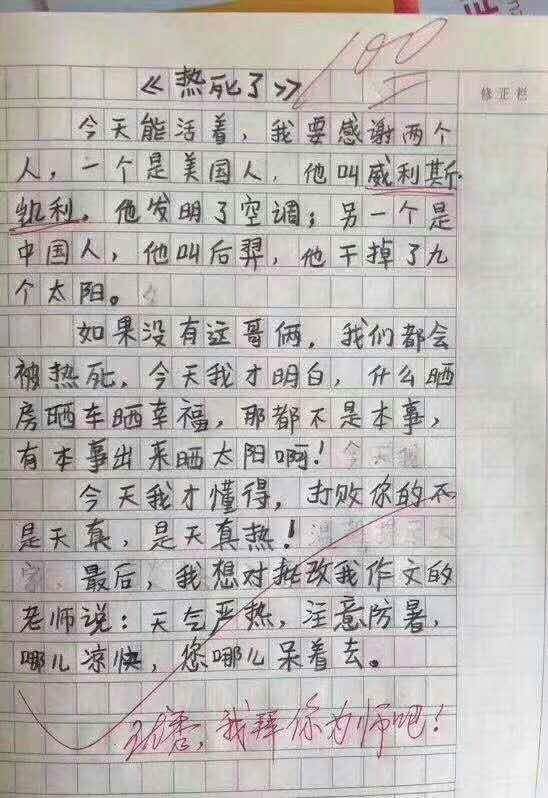 100
《热死了》
修正栏
今天能活着，我要感谢两个
人，一个是美国人，他叫威利斯
凯利，他发明了空调；另一个是
中国人，他叫后羿，他干掉了九
个太阳。
如果没有这哥俩，我们都会
被热死，今天我才明白，什么晒
房晒车晒幸福，那都不是本事，
有本事出来晒太阳啊！
今天我才懂得，打败你的不
是天真，是天真热！
最后，我想对批改我作文的
老师说：天气严热，注意防暑，
哪儿凉快，您哪儿呆着去。
我拜你为师吧！